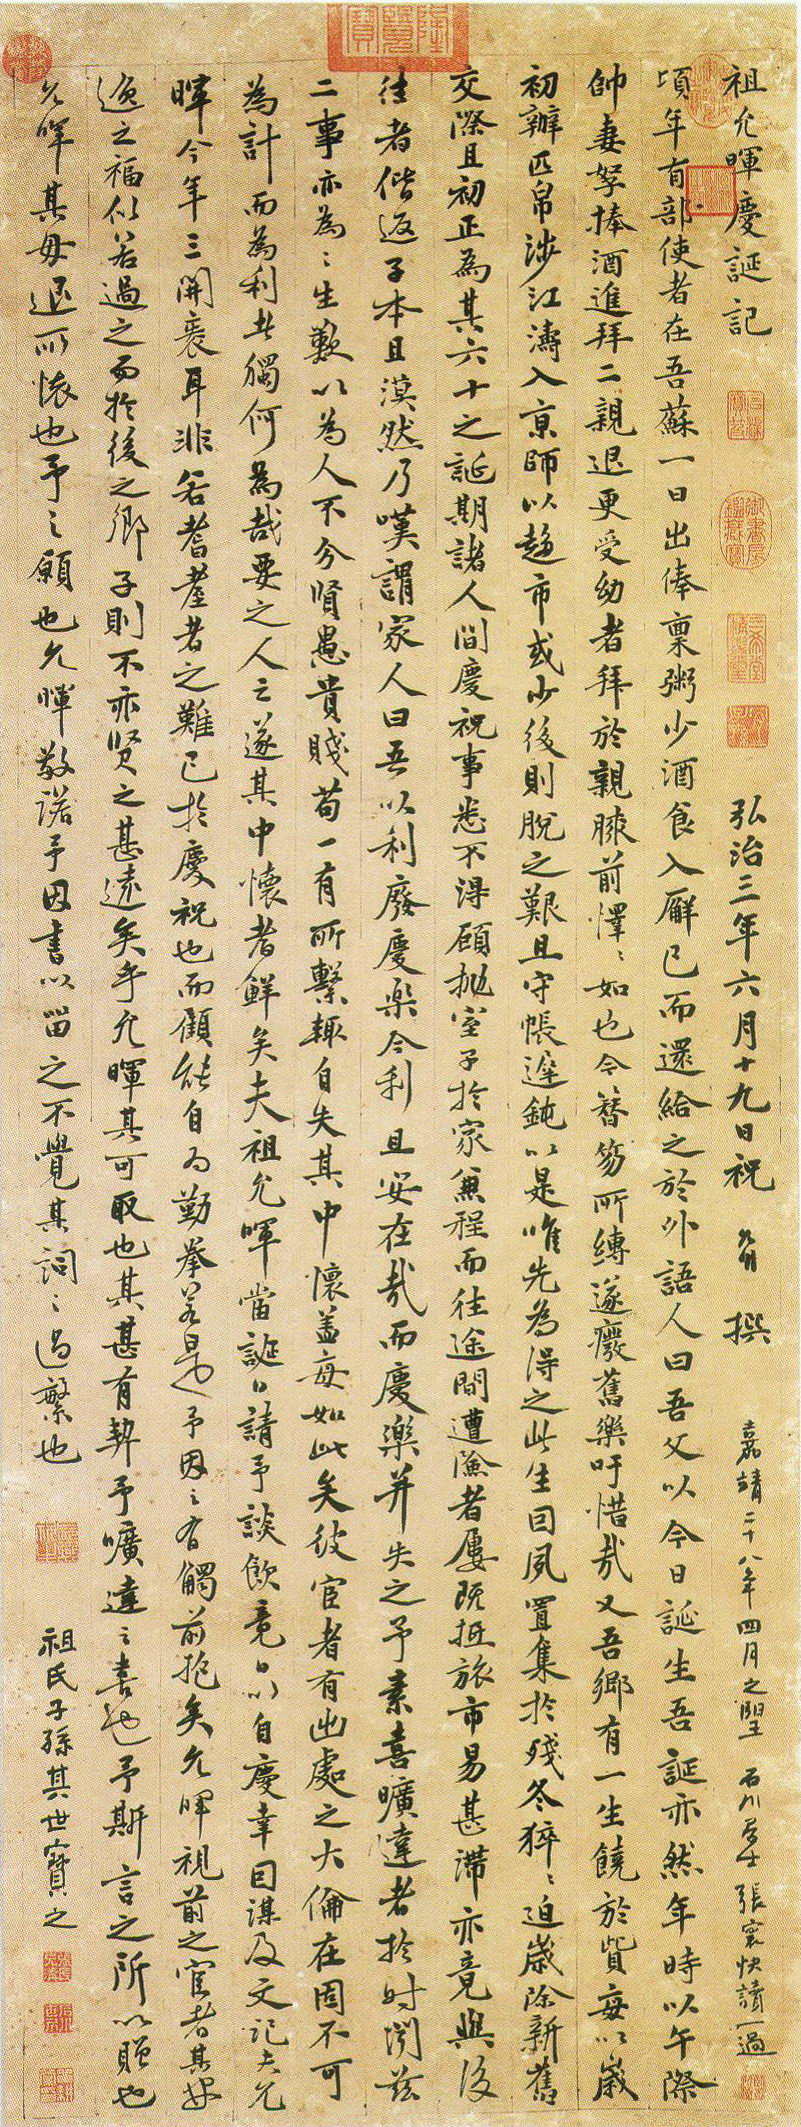 祖允暉慶誕記
弘治三年六月十九日祝允明撰
嘉靖二十八年四月之望石川居士張寰快讀一過
頃年有部使者在吾蘇一日出俸稟粥少酒食入廨已而還給之於外語人曰吾父以今日誕生吾誕亦然年時以午際
帥妻孥捧酒進拜二親退更受幼者拜於親膝前懌〻如也今簪笏所縛遂癈舊樂吁惜哉又吾鄉有一生饒於貲每以歲
初辦匹帛涉江濤入京師以趁市或少後則脫之艱且守帳遲鈍以是唯先為得之此生回夙置集於殘冬猝〻迫歲除新舊
交際且初正為其六十之誕期諸人間慶祝事悉不得顧拋室子於家兼程而往途間遭險者屢既抵旅市易甚滯亦竟與後
往者偕返子本且漠然乃嘆謂家人曰吾以利廢慶樂今利且安在哉而慶樂并失之予素喜曠達者於時閔茲
二事亦為〻生歎以為人不分賢愚貴賤苟一有所繫輒自失其中懷蓋每如此矣彼宦者有出處之大倫在固不可
為計而為利者獨何為哉要之人之遂其中懷者鮮矣夫祖允暉當誕日請予談飲竟日以自慶幸因謀及文記夫允
暉今年三開袠耳非若耆耋者之難已於慶祝也而顧能自為勤拳若是予因〻有觸前抱矣允暉視前之宦者其安
逸之福似若過之而於後之鄉子則不亦賢之甚遠矣乎允暉其可取也其甚有契予曠達之喜也予斯言之所以贈也
允暉其毋退所懷也予之願也允暉敬諾予因書以留之不覺其詞〻過繁也
祖氏子孫其世寶之